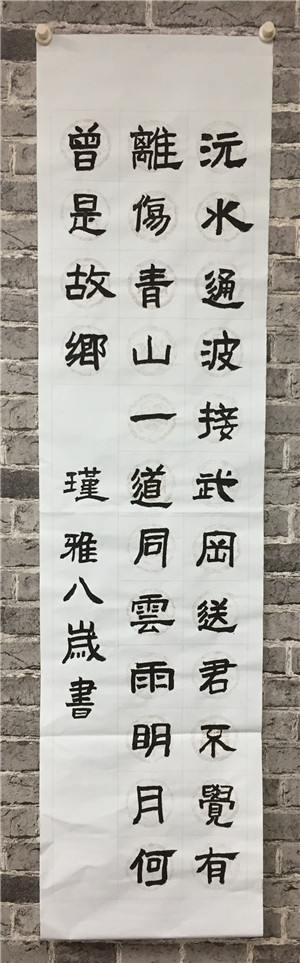 沅水通波接武岡送君不覺有
離傷青山一道同雲雨明月何
曾是故鄉
瑾雅八歲書